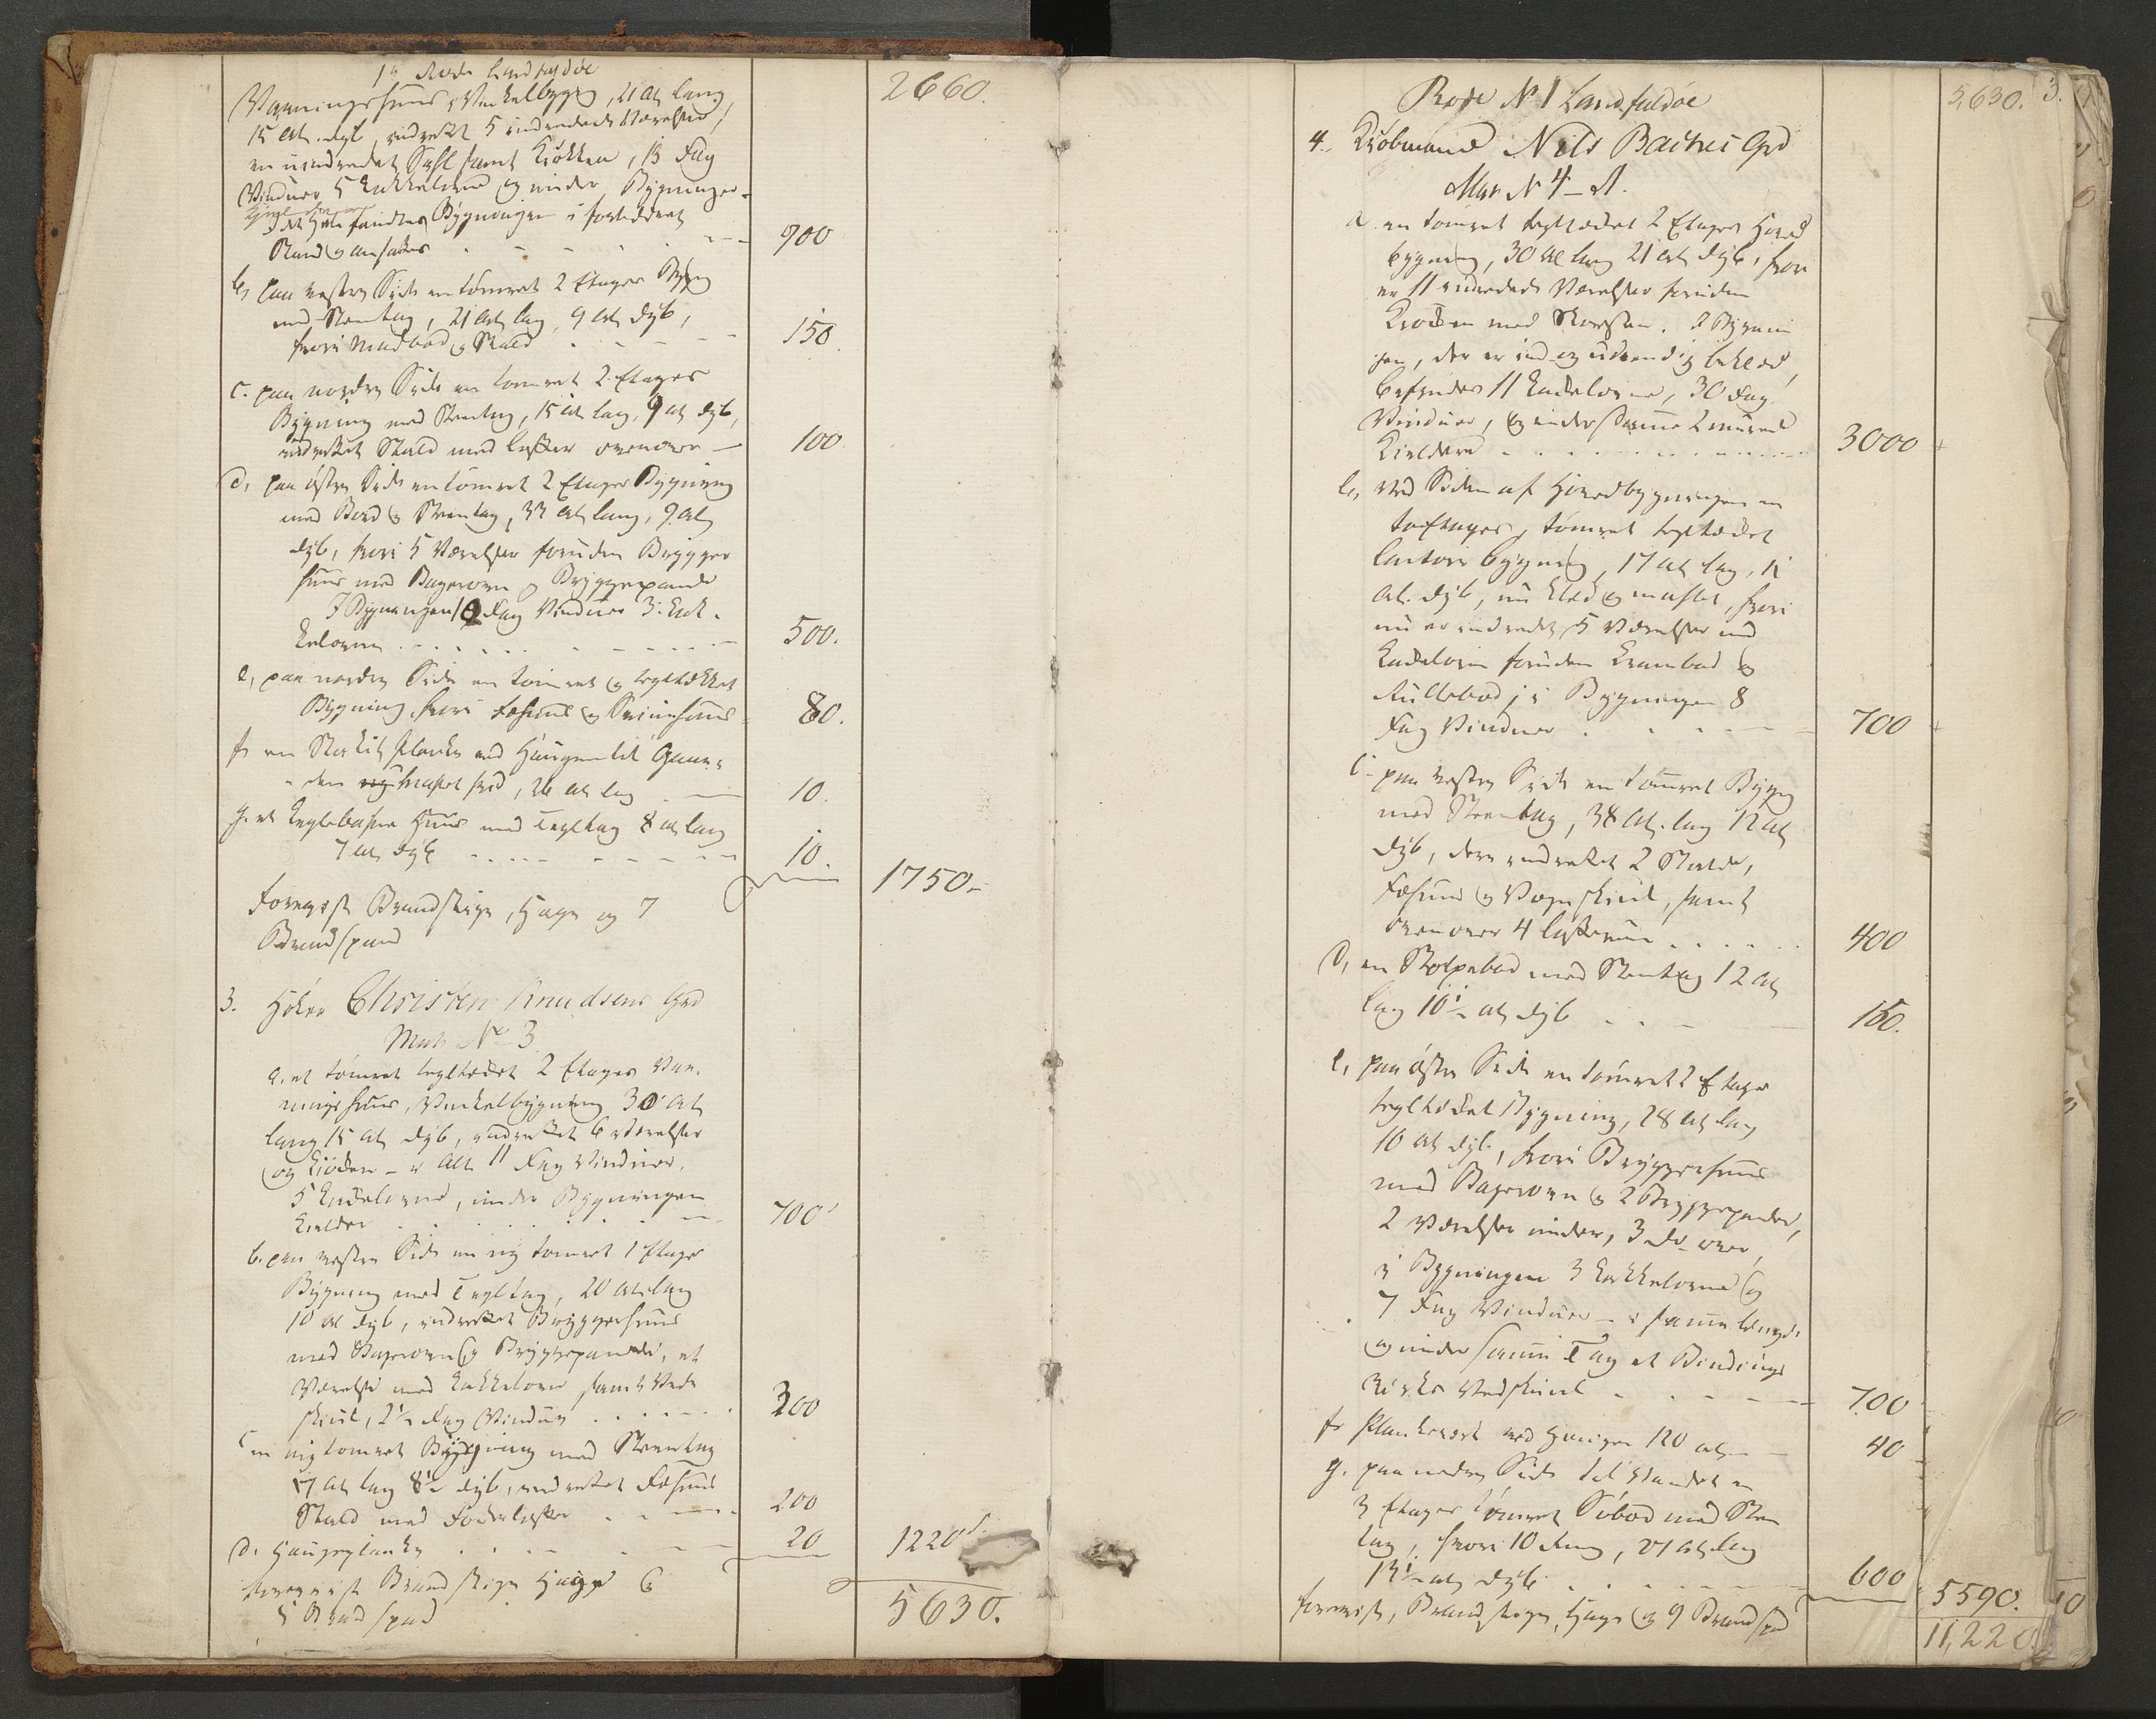 1ste Rode Landfaldöe
2660.
Vaaningshuus, Vinkelbygn, 21 Al lang,
15 Al. dyb, indrettet 5 indredede Værelser,
en uindredet Sahl samt Kiökken, 13 Fag
Vinduer 5 Kakkelovne og under Bygningen
Stand og ansattes 900
b, paa vestre Side en tömret 2 Etages Bygn
med Steentag, 21 Al lang, 9 Al dyb,
hvori Madbod og Stald 150
c. paa nordre Side en tömret 2 Etages
Bygning med Steentag, 15 Al lang, 9 Al dyb,
indrettet Stald med lofter ovenover 100
d, paa östre Side en tömret 2 Etages Bygning
med Bord og Steentag, 33 Al lang, 9 Al
dyb, hvori 5 Værelser foruden Brygger
huus med Bagerovn og Bryggepande
I Bygningen Fag Vinduer 3 Kak-
kelovne 500.
e, paa nordre Side en tömret og tegltækket
Bygning hvori Fæhuus og Sviinehuus 80.
f, en Stakit Planke ved Haugen til Gaar-
den, 26 Al lang 10.
g. et Keglebahne Huus med Tegltag 8 Al lang
7 Al dyb 10.
1750.-
Forevist Brandstige, Hage og 7
Brandspand
3. Höker Christen Knudsens Grd
Matr No 3
a. et tömret tegltækket 2 Etages Vaa-
ningshuus, Vinkelbygning 30 Al
lang 15 Al dyb, indrettet 6 Værelser
og Kiökken - i Alt 11 Fag Vinduer,
5 Kakkelovne, under Bygningen
Kielder 700
b. paa vestre Side en ny tömret 1 Etages
Bygning med Tegltag, 20 Al lang
10 Al dyb, indrettet Bryggerhuus
med Bagerovn og Bryggepande, et
Værelse med Kakkelovn samt Ved-
skiul, 2½ Fag Vinduer 300
c en ny tömret Bygning med Steentag
17 Al lang 8½ dyb, indrettet Fæhuus
Stald med Foderlofter 200
d. Haugeplanke 20
1220
forevist Brandstige Hage og
5 Brandspand
5630.
Rode No 1 Landfaldöe
5,630. 3.
4. Kiöbmand Nils Baches Grd
Matr No 4 - A.
a. en tömret tegltækket 2 Etages Hoved
bygning, 30 Al lang 21 Al dyb, hvori
er 11 indredede Værelser foruden
Kiökken med Skorsteen. I Bygnin
gen, der er ind og udvendig beklæd,
befindes 11 Kakkelovne, 30 Fag
Vinduer, og under samme 2 murede
Kieldere 3000
b, ved Siden af Hovedbygningen en
toetages, tömret tegltækket
Contoir bygning, 17 Al lang, 11
Al. dyb, nu klæd og mahlet, hvori
nu er indredet 5 Værelser med
Kakkelovn foruden Krambod og
Rullebod, i Bygningen 8
Fag Vinduer 700
c. paa vestre Side en tömret Bygn
med Steentag, 38 Al. lang 12 Al
dyb, deri indrettet 2 Stalde,
Fæhuus og Vognskiul, samt
ovenover 4 lofterum 400
D, en Stolpebod med Steentag 12 Al
lang 10½ Al dyb 150.
e, paa östre Side en tömret 2 Etages
tegltækket Bygning, 28 Al lang
10 Al dyb, hvori Bryggerhuus
med Bagerovn og 2 Bryggepander,
2 Værelser under, 3 do over,
i Bygningen 3 Kakkelovne og
7 Fag Vinduer - i samme længde
og under samme Tag et Bindings
Virkes Vedskiul 700
f. Plankeværk ved Haugen 120 Al 40
g. paa nedre Side til Strandet en
3 Etages tömret Söbod med Steen
tag, hvori 10 Rum, 21 Al lang
13½ Al dyb 600
5590.
forevist, Brandstige, Hage og 9 Brandspd
11,220